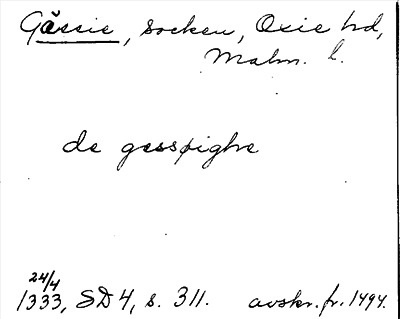 Gässie, socken, Oxie hd,
Malm. l.
de gæsspighæ
24/4
1333, SD 4, s. 311. avskr. fr. 1494.